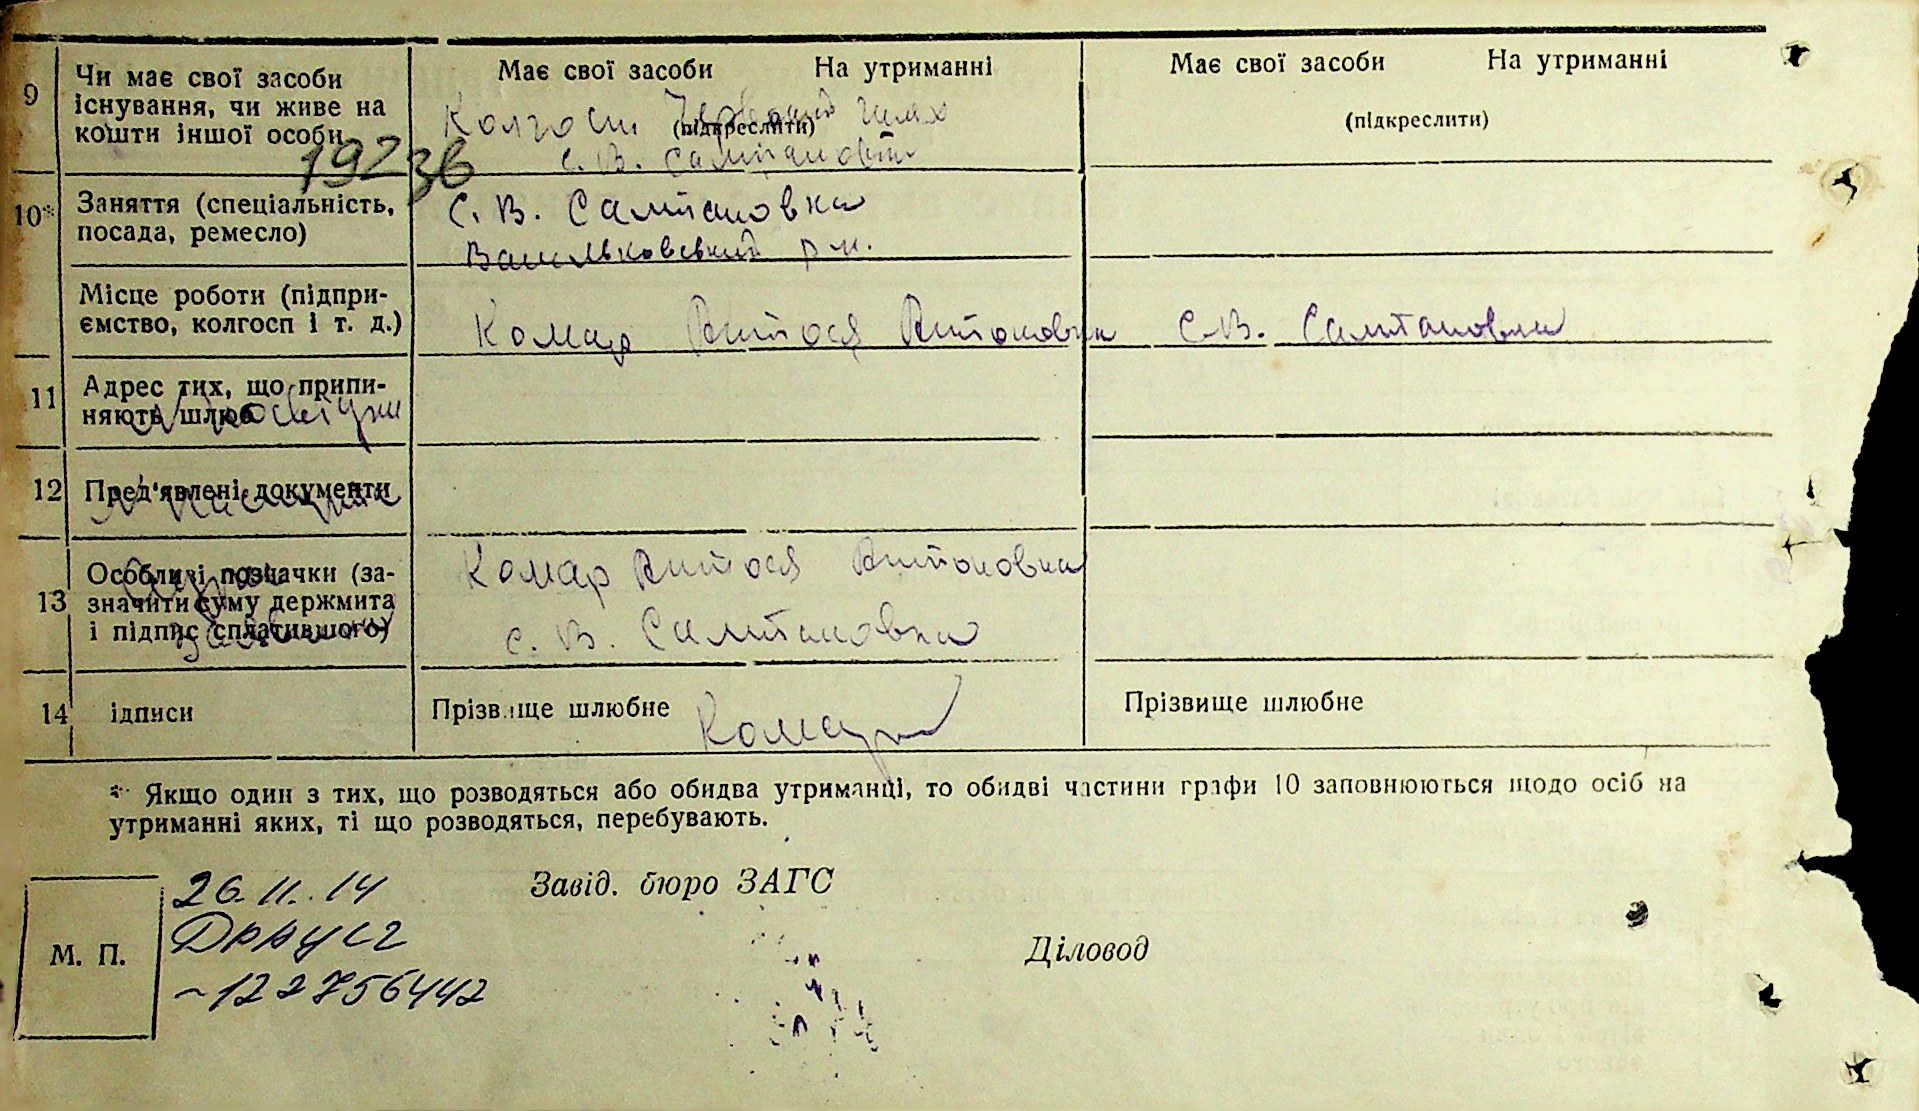 9
Чи має свої засоби
існування, чи живе на
кошти іншої особи
Має свої засоби На утриманні
Колгосп Червоний шлях
(підкреслити)
с. В. Салтановка
Має свої засоби На утриманні
(підкреслити)
19236
10*
Заняття (спеціальність,
посада, ремесло)
с. В. Салтановка
Васильковський р-н.
Місце роботи (підпри-
ємство, колгосп і т. д.)
Комар Антося Антоновна С. В. Салтановка
11
Адрес тих, що припи-
няють шлюб
12
Пред'явлені документи
13
Особливі позначки (за-
значити суму держмита
і підпис сплатившого)
Комар Антося Антоновна
с. В. Салтановка
14
ідписи
Прізвище шлюбне Комар
Прізвище шлюбне
* Якщо один з тих, що розводяться або обидва утриманці, то обидві частини графи 10 заповнюються щодо осіб на
утриманні яких, ті що розводяться, перебувають.
М. П.
26.11.14
ДРАЦСГ
122756442
Завід. бюро ЗАГС
Діловод